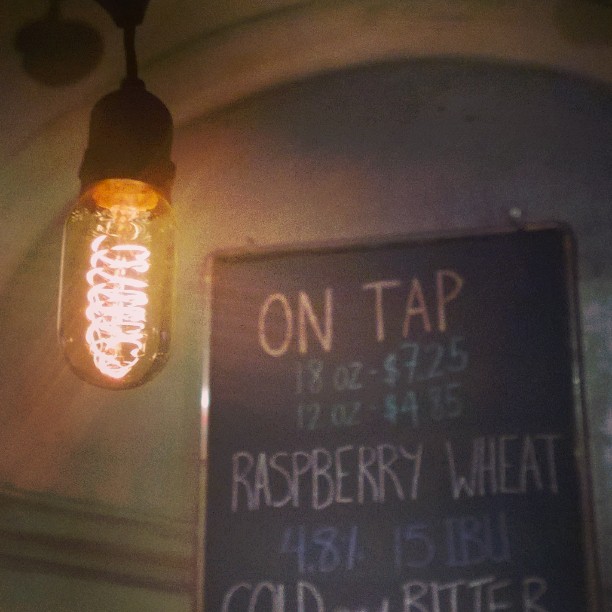 ON TAP
18 oz - $7.25
12 oz - $4.85
RASPBERRY WHEAT
4.8% 15 IBU
GOLD BITTER